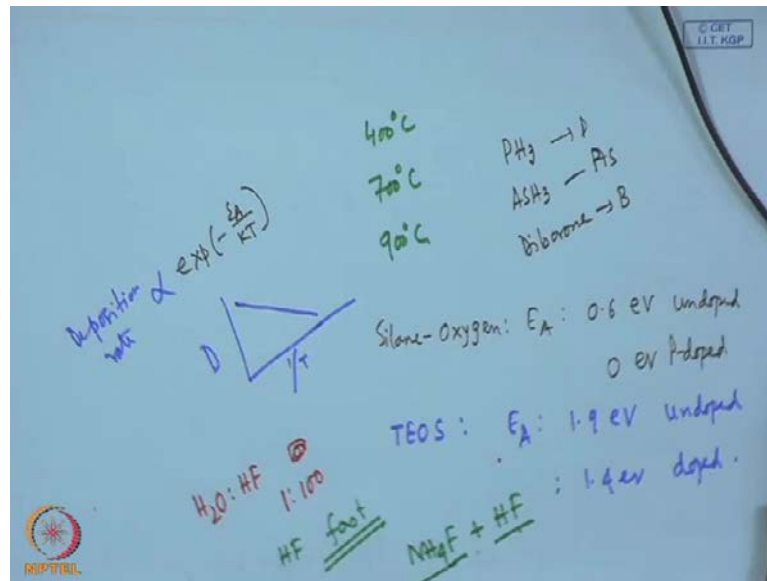 © CET
I.I.T. KGP
400°C
700°C
900°C
PH3 → P
ASH3 — AS
Diborone → B
Deposition rate ∝ exp(-EA/KT)
D
1/T
Silane-Oxygen: EA: 0.6 ev undoped
0 ev P-doped
TEOS : EA: 1.9 ev undoped
: 1.4 ev doped.
H2O: HF
1:100
HF fast
NH4F + HF
NPTEL